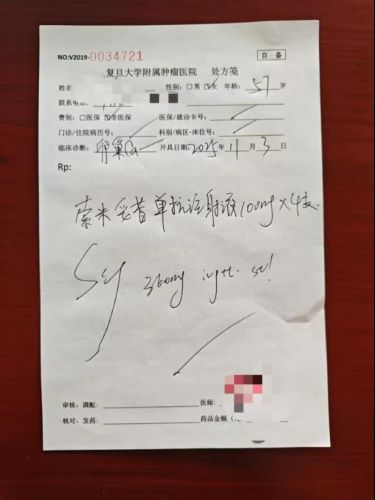 NO:V2019-0034721
自备
复旦大学附属肿瘤医院 处方笺
姓名 性别：□男 ☑女 年龄：57 岁
联系电话
费别：□医保 ☑非医保 医保/就诊卡号：
门诊/住院病历号： 科别/病区-床位号：
临床诊断：卵巢Ca 开具日期：2025年11月3日
Rp:
索米妥昔单抗注射液100mg×4支
Sig 360mg ivgtt. st!
审核、调配： 医师：
核对、发药： 药品金额